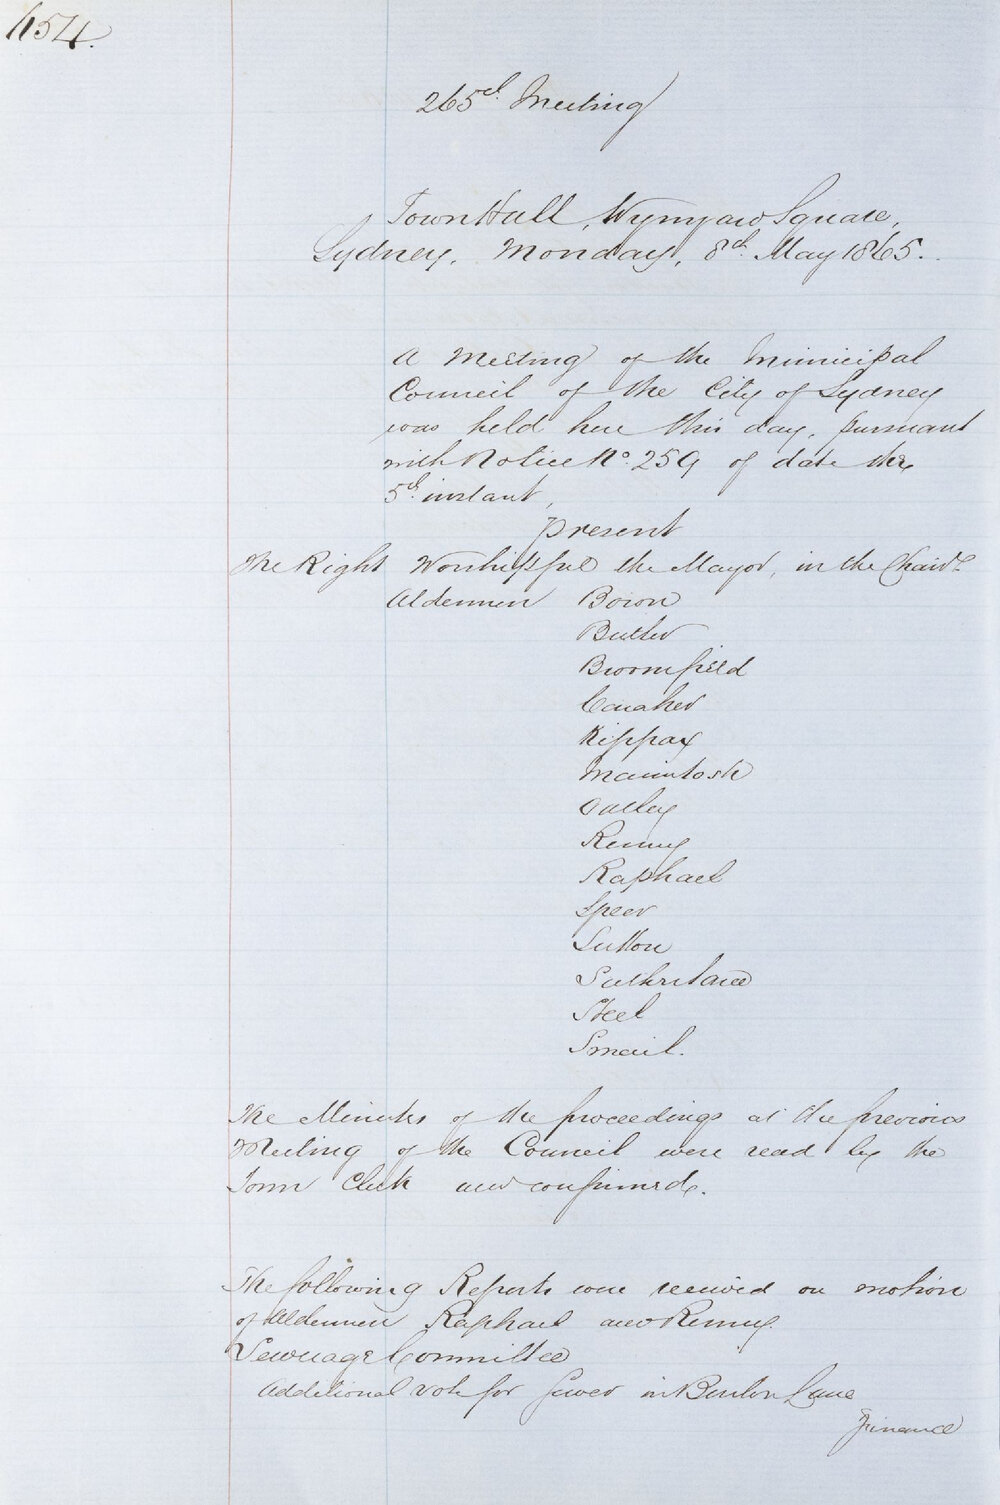 654.
265th Meeting
Town Hall, Wynyard Square,
Sydney, Monday, 8th May 1865.
A Meeting of the Municipal
Council of the City of Sydney
was held here this day, pursuant
with Notice No. 259 of date the
5th instant,
present
The Right Worshipful the Mayor, in the Chair.
Aldermen Bowen
Butler
Broomfield
Caraher
Kippax
Macintosh
Oatley
Renny
Raphael
Speer
Sutton
Sutherland
Steel
Smail.
The Minutes of the proceedings at the previous
Meeting of the Council were read by the
Town Clerk and confirmed.
The following Reports were received on motion
of Aldermen Raphael and Renny.
Sewerage Committee
Additional vote for Sewer in Lane
Finance